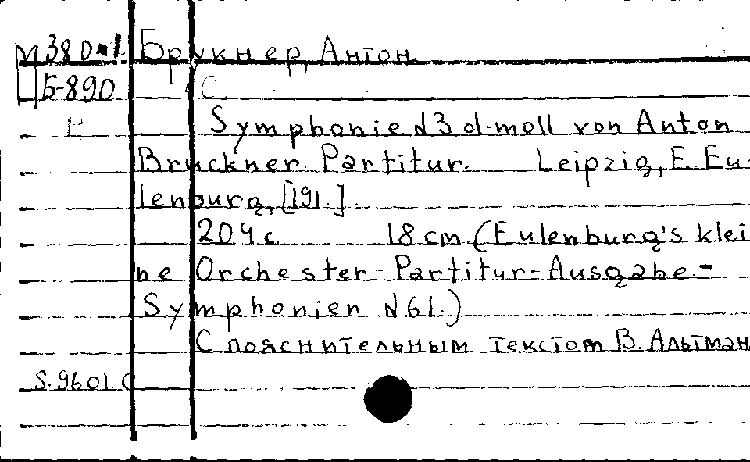 М380-1 Брукнер, Антон.
Б-890 С
Symphonie №3 d-moll von Anton
Bruckner. Partitur. Leipzig, E. Eu-
lenburg, [191.]
204 с. 18 cm. (Eulenburg's klei
ne Orchester-Partitur-Ausgabe.-
Symphonien №61.)
С пояснительным текстом В. Альтман
S.9601 С